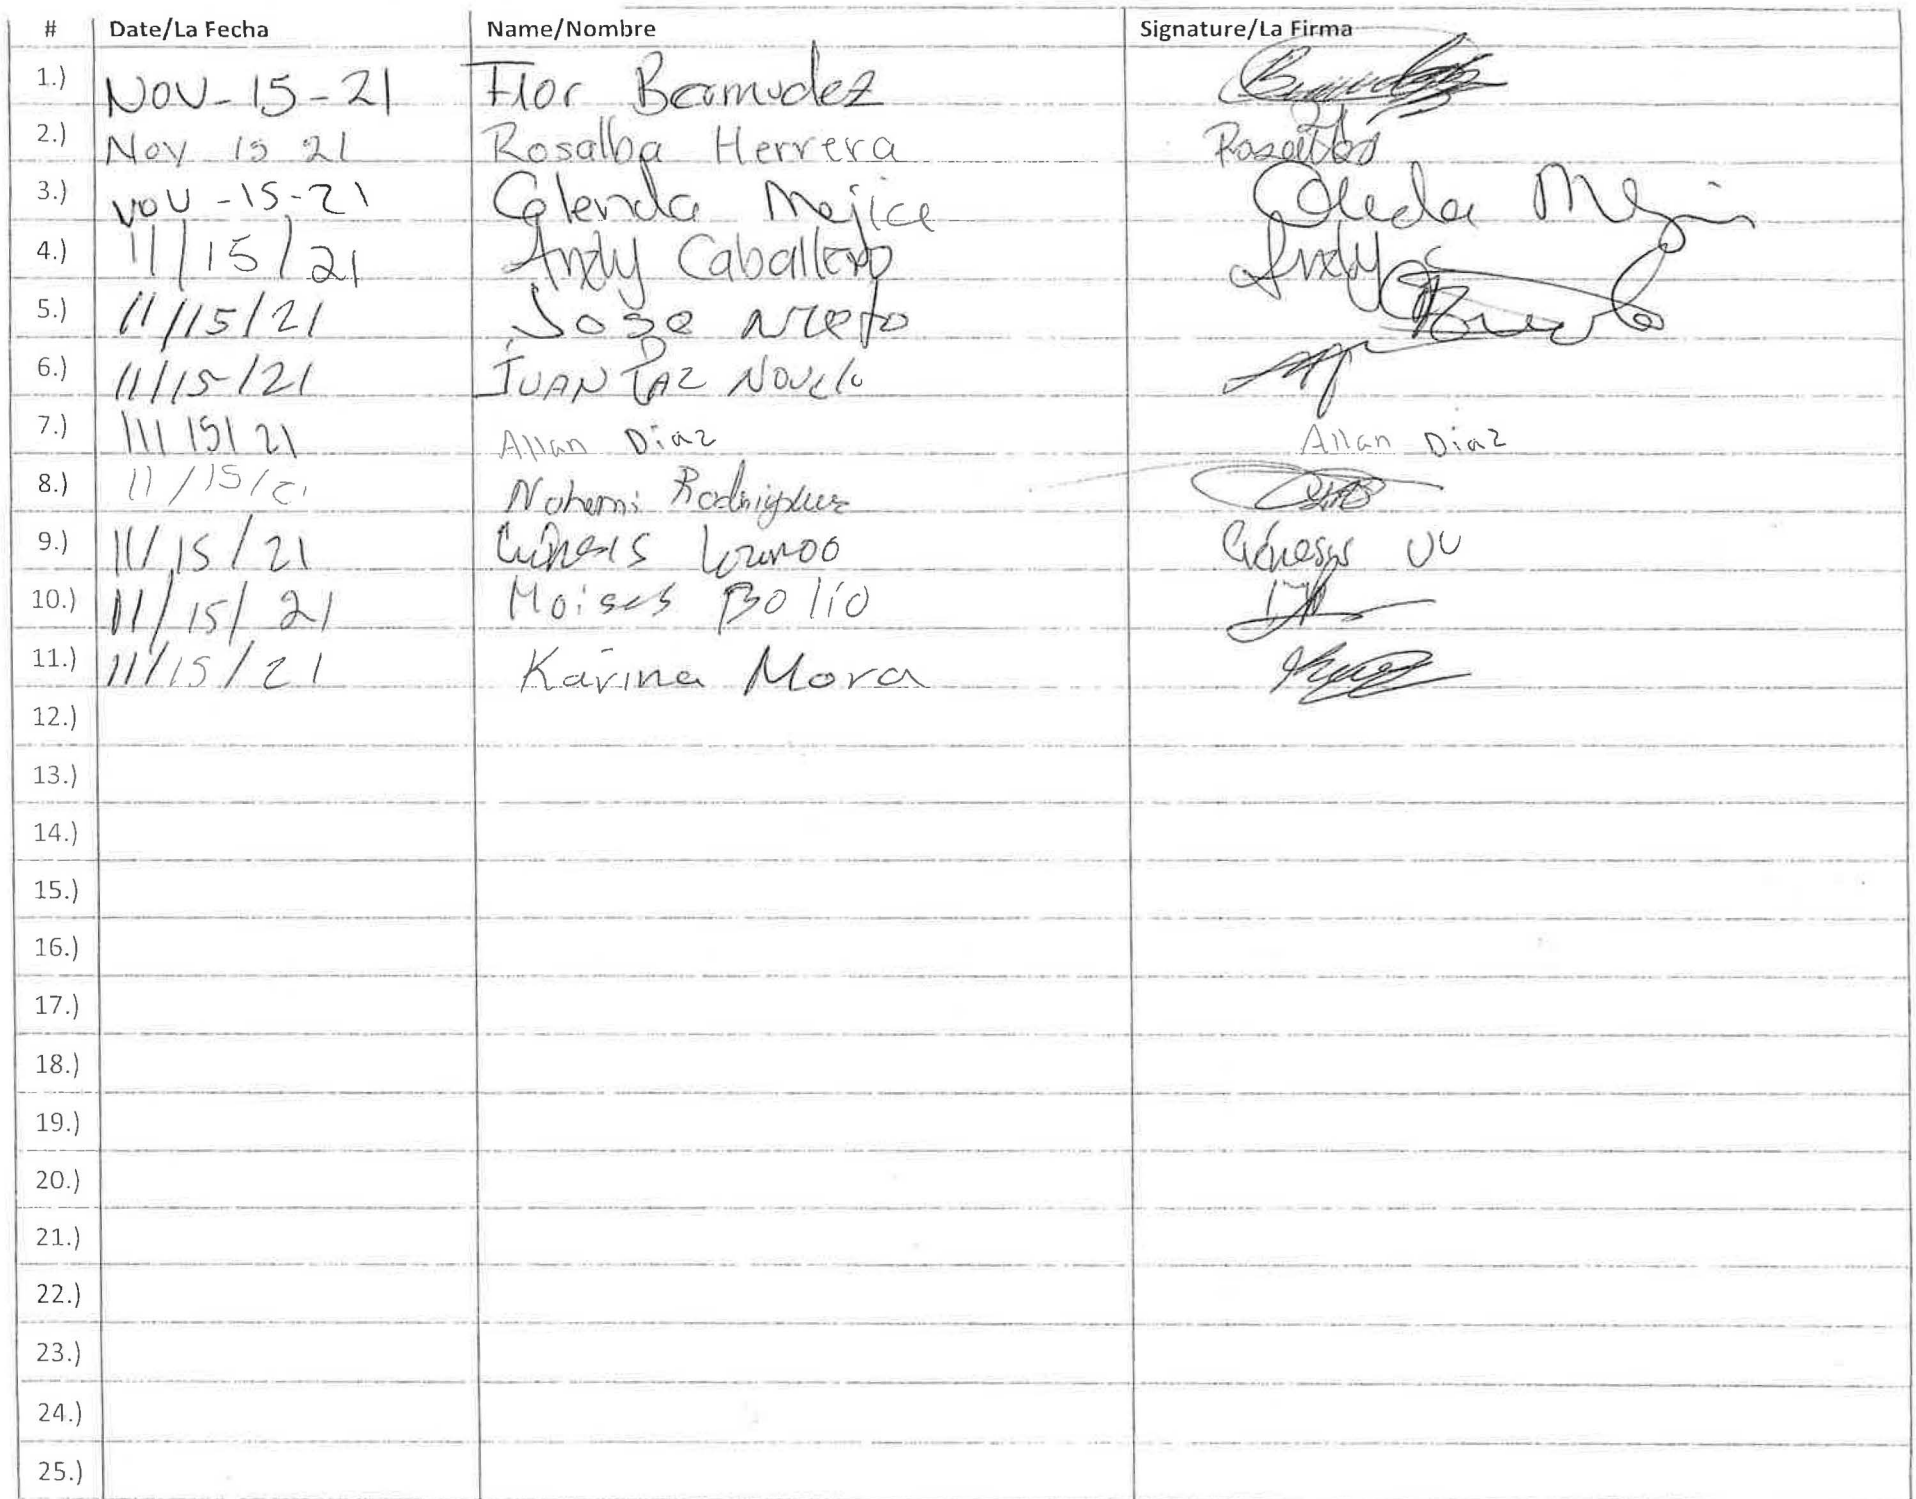 # Date/La Fecha Name/Nombre Signature/La Firma
1.) NOV-15-21 Flor Bermudez
2.) Nov 15 21 Rosalba Herrera Rosalba
3.) NOV-15-21 Glenda Mejice
4.) 11/15/21 Andy Caballero Andy C
5.) 11/15/21 Jose Nieto
6.) 11/15/21 JUAN PAZ NOVELO
7.) 11/15/21 Allan Diaz Allan Diaz
8.) 11/15/21 Nohemi Rodriguez
9.) 11/15/21 Génesis
10.) 11/15/21 Moises Bolio
11.) 11/15/21 Karina Mora
12.)
13.)
14.)
15.)
16.)
17.)
18.)
19.)
20.)
21.)
22.)
23.)
24.)
25.)